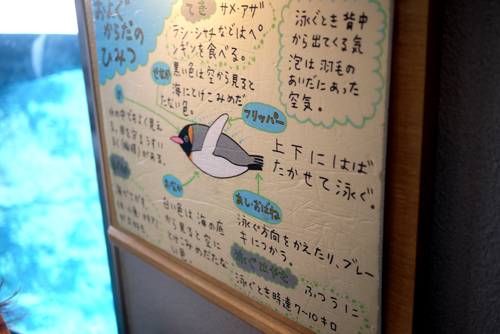 およぐ
からだの
ひみつ
てき
サメ・アザ
ラシ・シャチなどはペ
ンギンを食べる。
泳ぐとき背中
から出てくる気
泡は羽毛の
あいだにあった
空気。
せなか
黒い色は空から見ると
海にとけこみめだ
たない色。
フリッパー
上下にはば
たかせて泳ぐ。
水の中でもよく見え
る。目を守るうすい
まく(瞬膜)がある。
おなか
白い色は海の底
から見ると空に
とけこみめだたな
い色。
あし・おばね
泳ぐ方向をかえたり、ブレー
キにつかう。
ふつうに
泳ぐとき時速7~10キロ